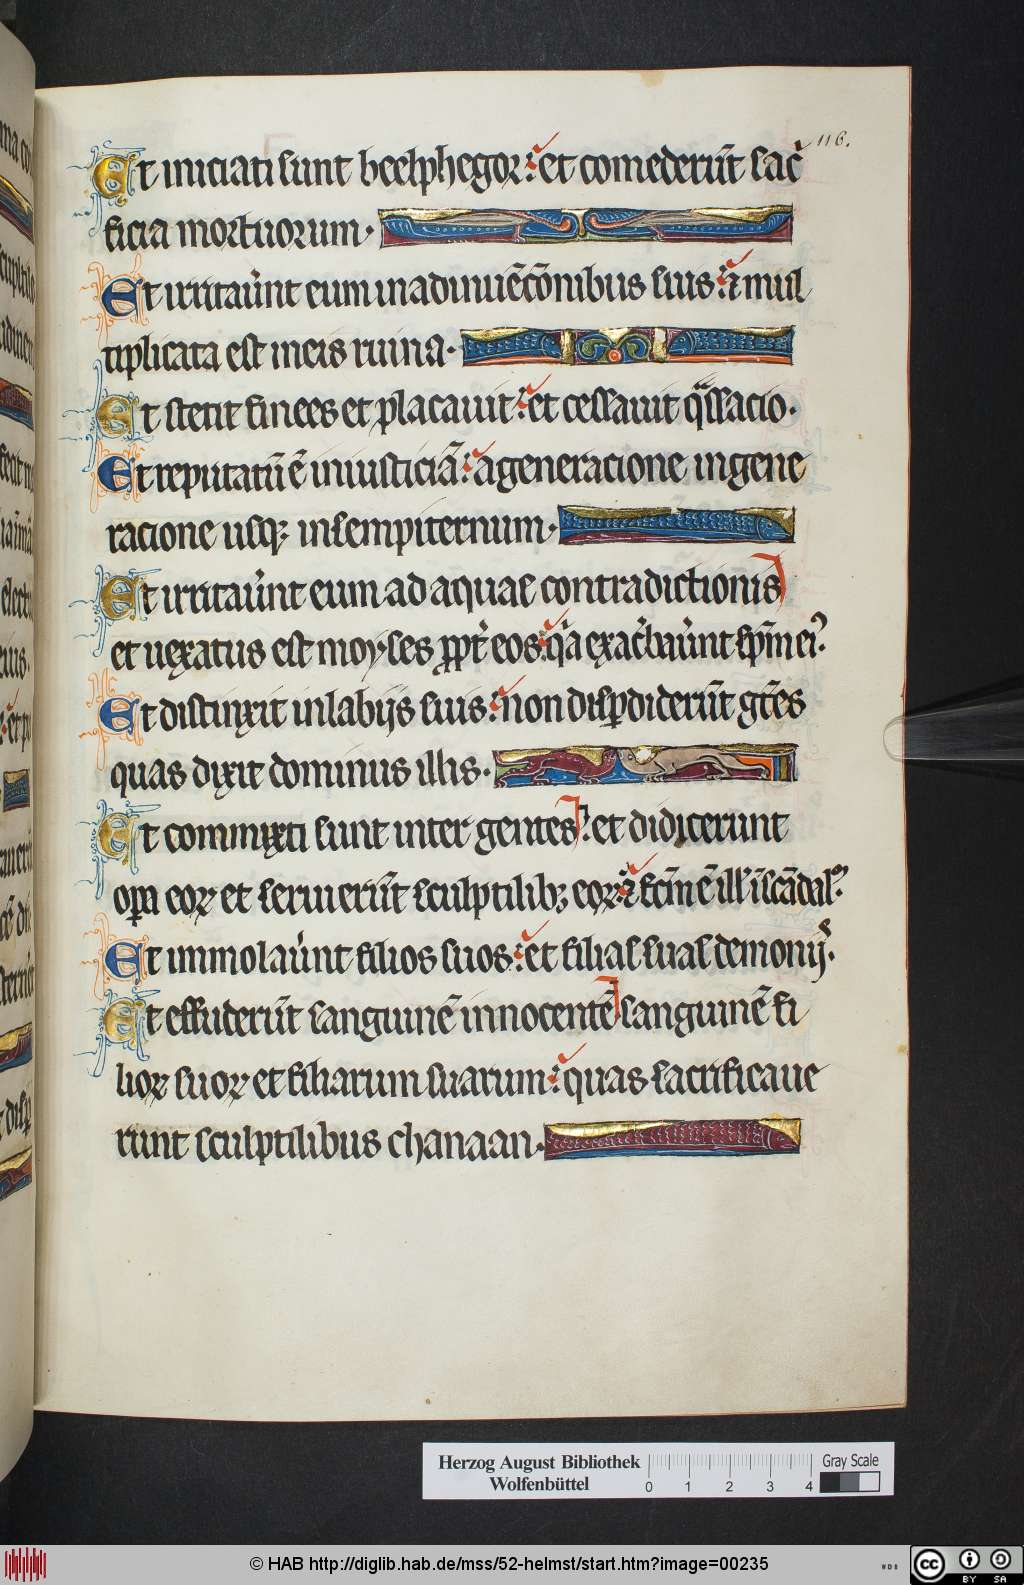 116.
Et iniciati sunt beelphegor : et comederūt sac̉
ficia mortuorum.
Et irritau̓nt eum in adinuēcōnibus suis : ⁊ mul
tiplicata est in eis ruina.
Et stetit finees et placauit : et cessauit q̈ssacio.
Et reputatū ē in iusticiā : a generacione in gene
racione usq; in sempiternum.
Et irritau̓nt eum ad aquae contradictionis
et uexatus est moyses ꝓpt̉ eos : q̉a exac̉bau̓nt sp̄m eiꝰ.
Et distinxit in labijs suis : non disp̱diderūt gēs
quas dixit dominus illis.
Et commixti sunt inter gentes : et didicerunt
oꝑa eoꝝ et seruierūt sculptilibꝫ eoꝝ : ⁊ fc̄m ē ill' ī scādalꝰ.
Et immolau̓nt filios suos : et filias suas demonijˢ.
Et effuderūt sanguinē innocentē sanguinē fi
lioꝝ suoꝝ et filiarum suarum : quas sacrificaue
runt sculptilibus chanaan.
Herzog August Bibliothek
Wolfenbüttel
0 1 2 3 4
Gray Scale
© HAB http://diglib.hab.de/mss/52-helmst/start.htm?image=00235
WDB
cc BY SA